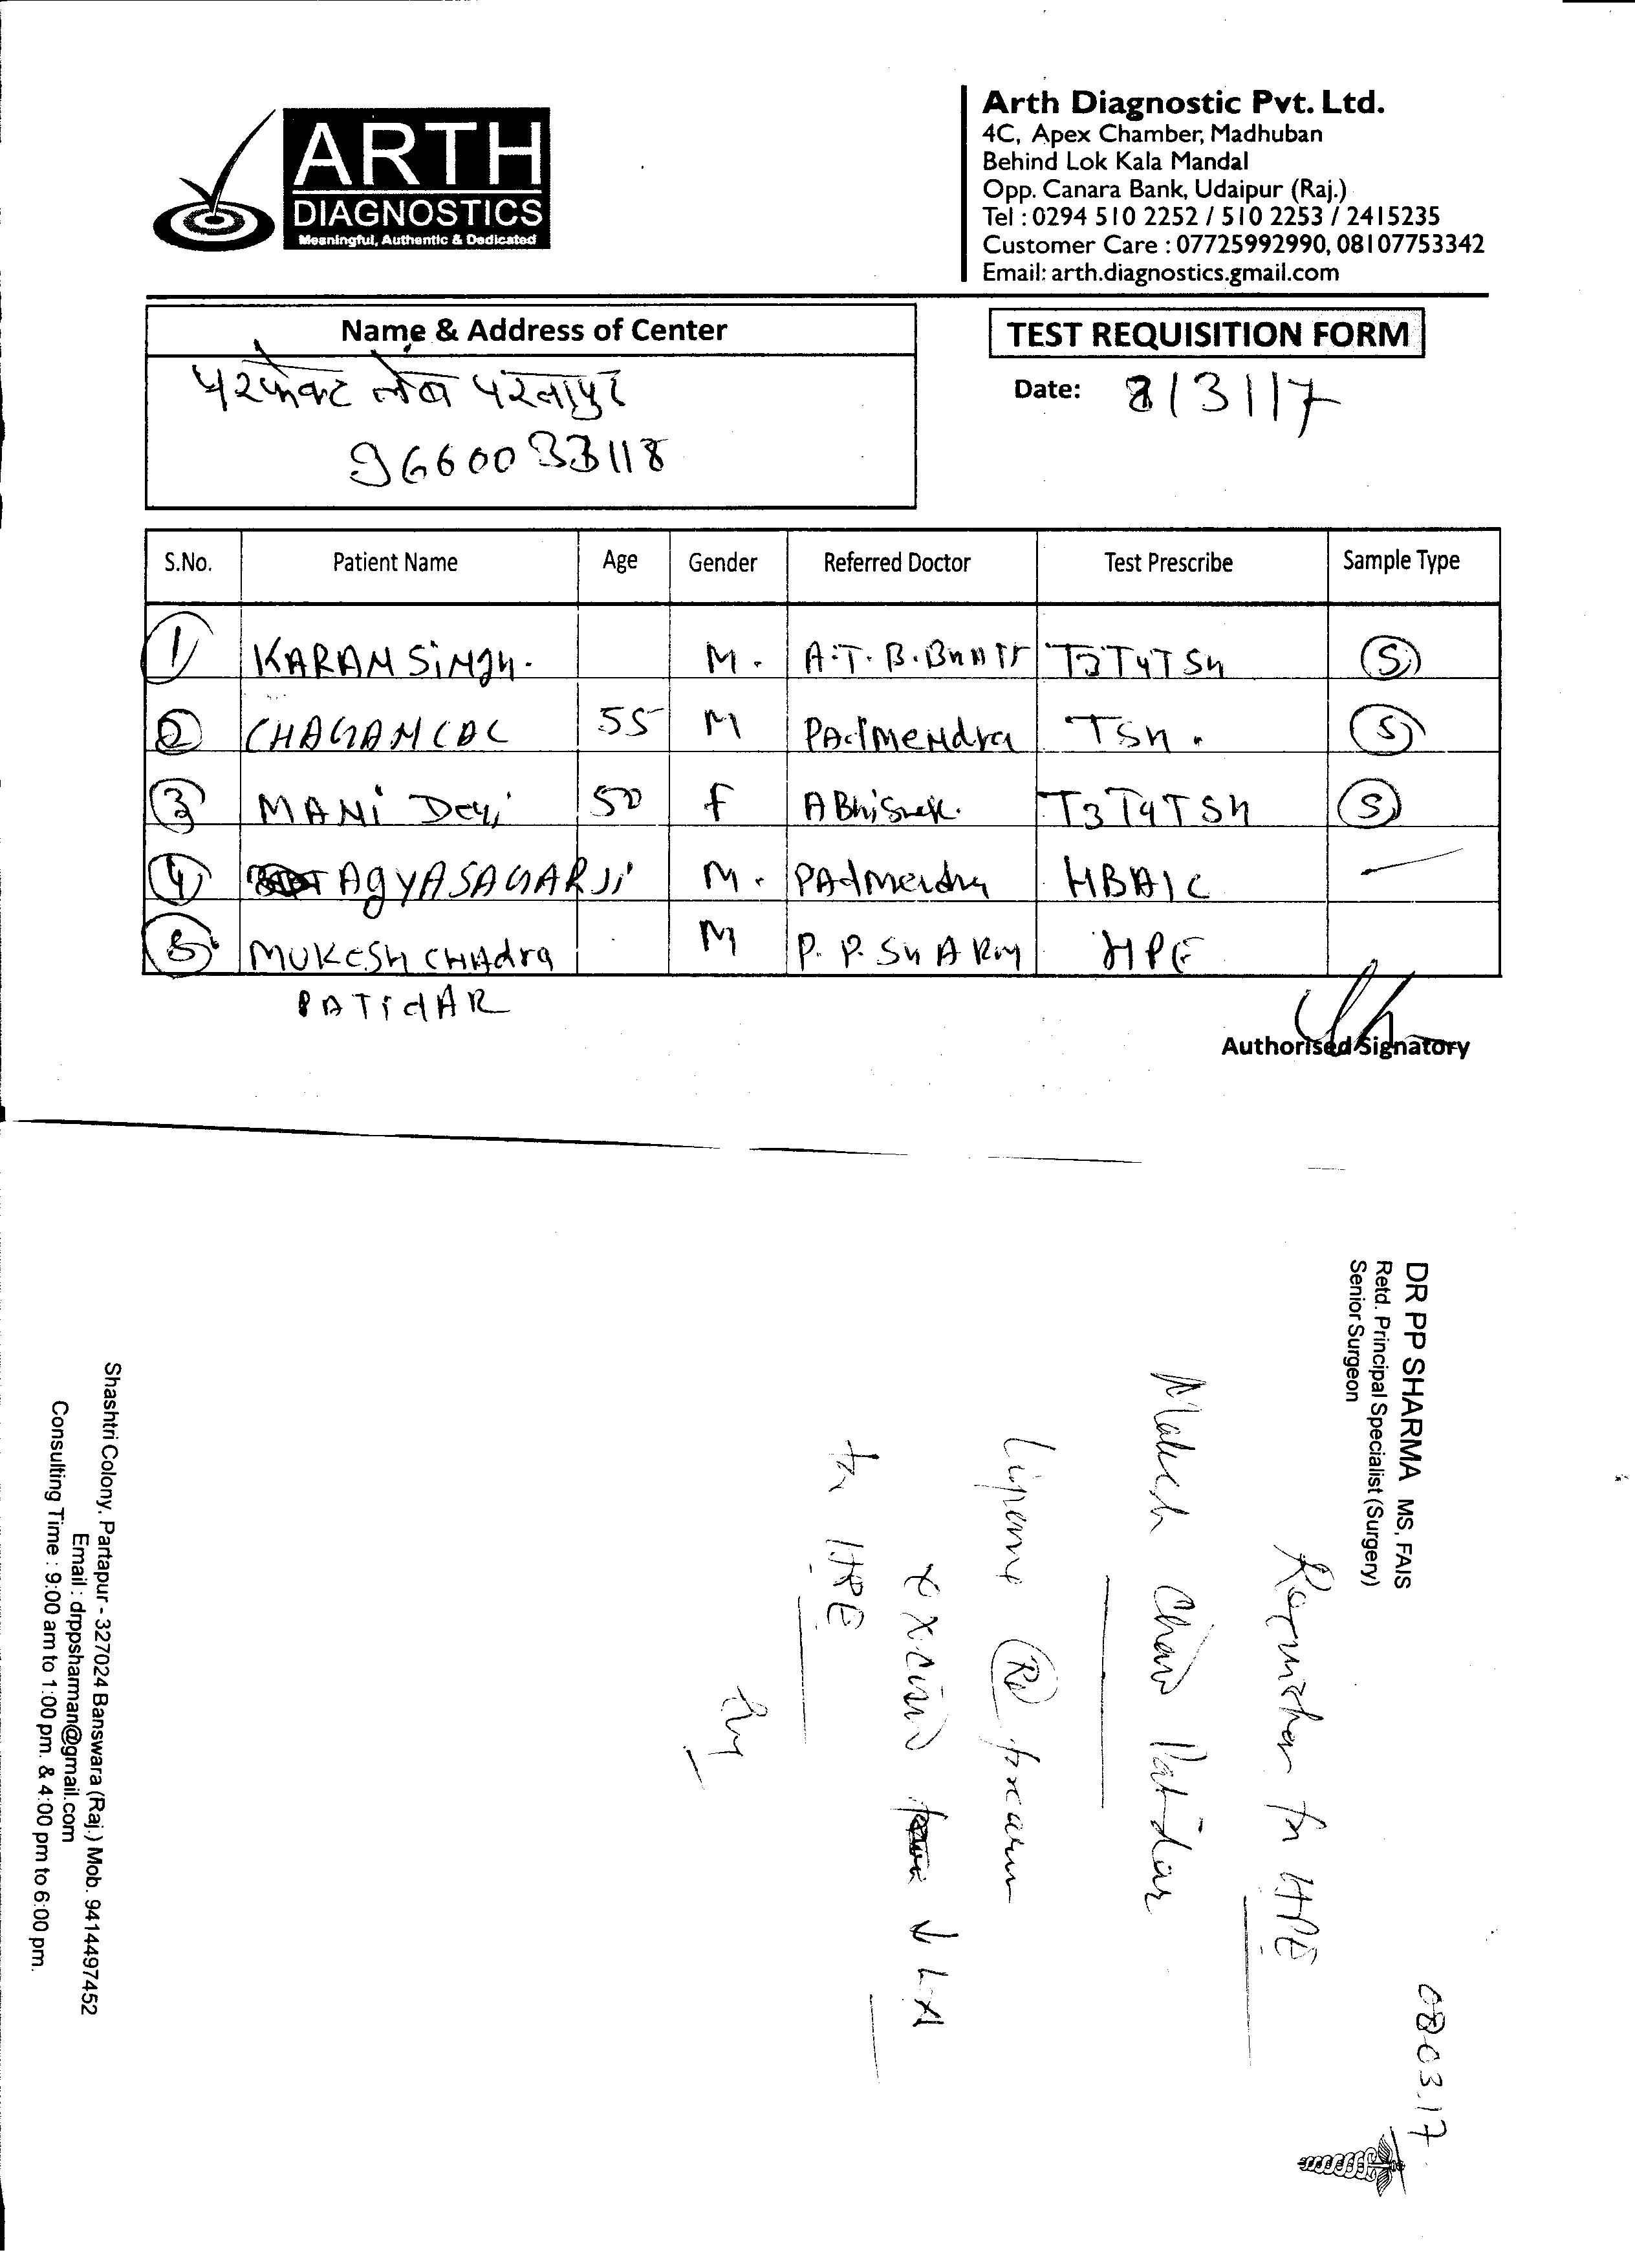 ARTH
DIAGNOSTICS
Meaningful, Authentic & Dedicated
Arth Diagnostic Pvt. Ltd.
4C, Apex Chamber, Madhuban
Behind Lok Kala Mandal
Opp. Canara Bank, Udaipur (Raj.)
Tel : 0294 510 2252 / 510 2253 / 2415235
Customer Care : 07725992990, 08107753342
Email: arth.diagnostics.gmail.com
Name & Address of Center
परफेक्ट लेब परतापुर
9660033118
TEST REQUISITION FORM
Date: 8/3/17
S.No. Patient Name Age Gender Referred Doctor Test Prescribe Sample Type
1 KARAN SINGH. M. A.T.B. T3T4TSH S
2 CHAGANLAL 55 M PAdMeNdra TSH. S
3 MANi Devi 50 F ABhiShek. T3T4TSH S
4 AgYASAGARJi M. PAdMendra HBA1C —
5 MUKESH CHAdra M P.P. SHARM HPE
PATidAR
Authorised Signatory
DR PP SHARMA MS, FAIS
Retd. Principal Specialist (Surgery)
Senior Surgeon
08.03.17
Requisition for HPE
Mukesh Chand Patidar
Lipoma Rt forearm
Excised ↓ LA
for HPE
Shashtri Colony, Partapur - 327024 Banswara (Raj.) Mob. 9414497452
Email : drppsharman@gmail.com
Consulting Time : 9:00 am to 1:00 pm. & 4:00 pm to 6:00 pm.